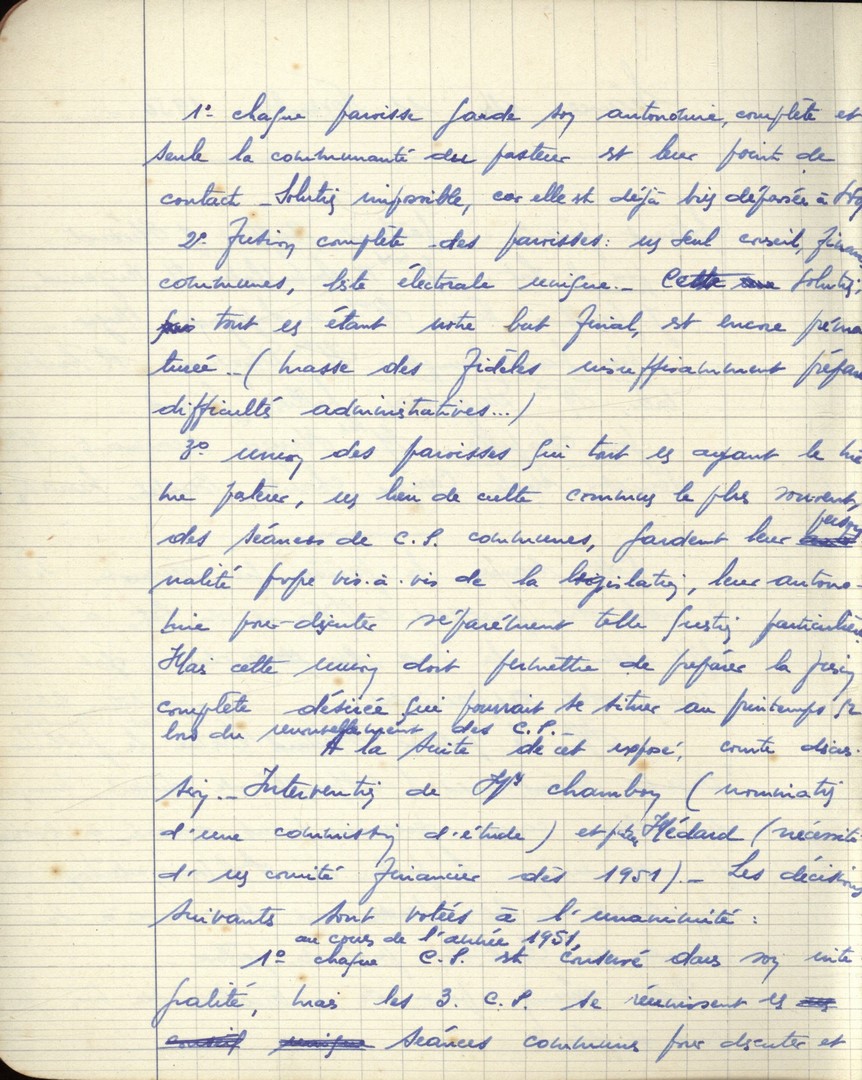 1º chaque paroisse garde son autonomie, complète et
seule la communauté du pasteur est leur point de
contact – Solution impossible, car elle est déjà bien dépassée à
2º Fusion complète des paroisses: un seul conseil, finan
communes, liste électorale unique. – Cette solution,
tout en étant notre but final, est encore préma
turée. – (masse des fidèles insuffisamment prépar
difficultés administratives...)
3º union des paroisses qui tout en ayant le mê
me pasteur, un lieu de culte commun le plus souvent,
des séances de C.P. communes, gardent leur person
nalité propre vis-à-vis de la législation, leur autono-
mie pour discuter séparément telle question particulière
Mais cette union doit permettre de préparer la fusion
complète désirée qui pourrait se situer au printemps 52
lors du renouvellement des C.P.
A la suite de cet exposé, courte discus-
sion. – Intervention de Mr Chambon (nomination
d'une commission d'étude) et Médard (nécessité
d'un comité financier dès 1951). – Les décisions
suivants sont votées à l'unanimité:
au cours de l'année 1951,
1º chaque C.P. est conservé dans son inté
gralité, mais les 3. C.P. se réunissent en
séances communes pour discuter et